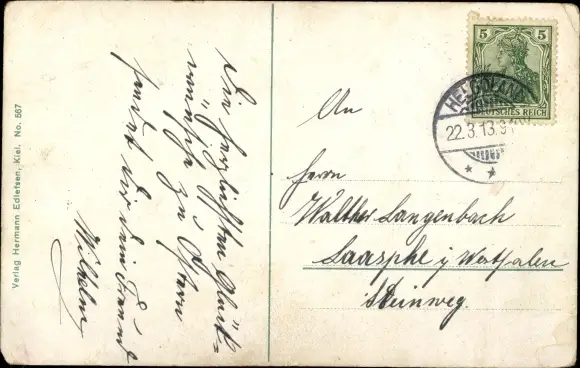 Die herzlichsten Glück=
wünsche zu Ostern
sendet dir dein Freund
Wilhelm
Verlag Hermann Edlefsen, Kiel. No. 567
5 5
DEUTSCHES REICH
HELGOLAND
22.3.13.9
An
Herrn
Walther Langenbach
Laasphe i/ Westfalen
Steinweg.